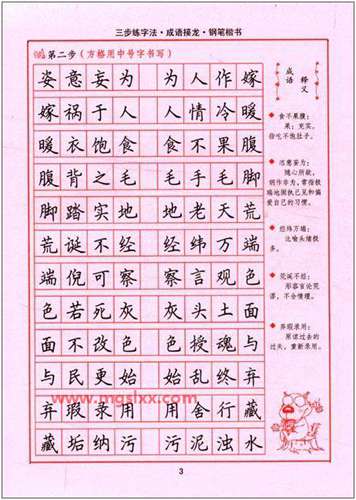 三步练字法·成语接龙·钢笔楷书
第二步（方格用中号字书写）
姿意妄为 为人作嫁
嫁祸于人 人情冷暖
暖衣饱食 食不果腹
腹背之毛 毛手毛脚
脚踏实地 地老天荒
荒诞不经 经纬万端
端倪可察 察言观色
色若死灰 灰头土面
面不改色 色授魂与
与民更始 始乱终弃
弃瑕录用 用舍行藏
藏垢纳污 污泥浊水
成语释义
食不果腹：
果：充实。
指吃不饱肚子。
恣意妄为：
随心所欲，
胡作非为。常指极
端地固执己见和偏
爱自己的习惯。
经纬万端：
比喻头绪极
多。
荒诞不经：
形容言论荒
谬，不合情理。
弃瑕录用：
原谅过去的
过失，重新录用。
www.mgslxx.com
3